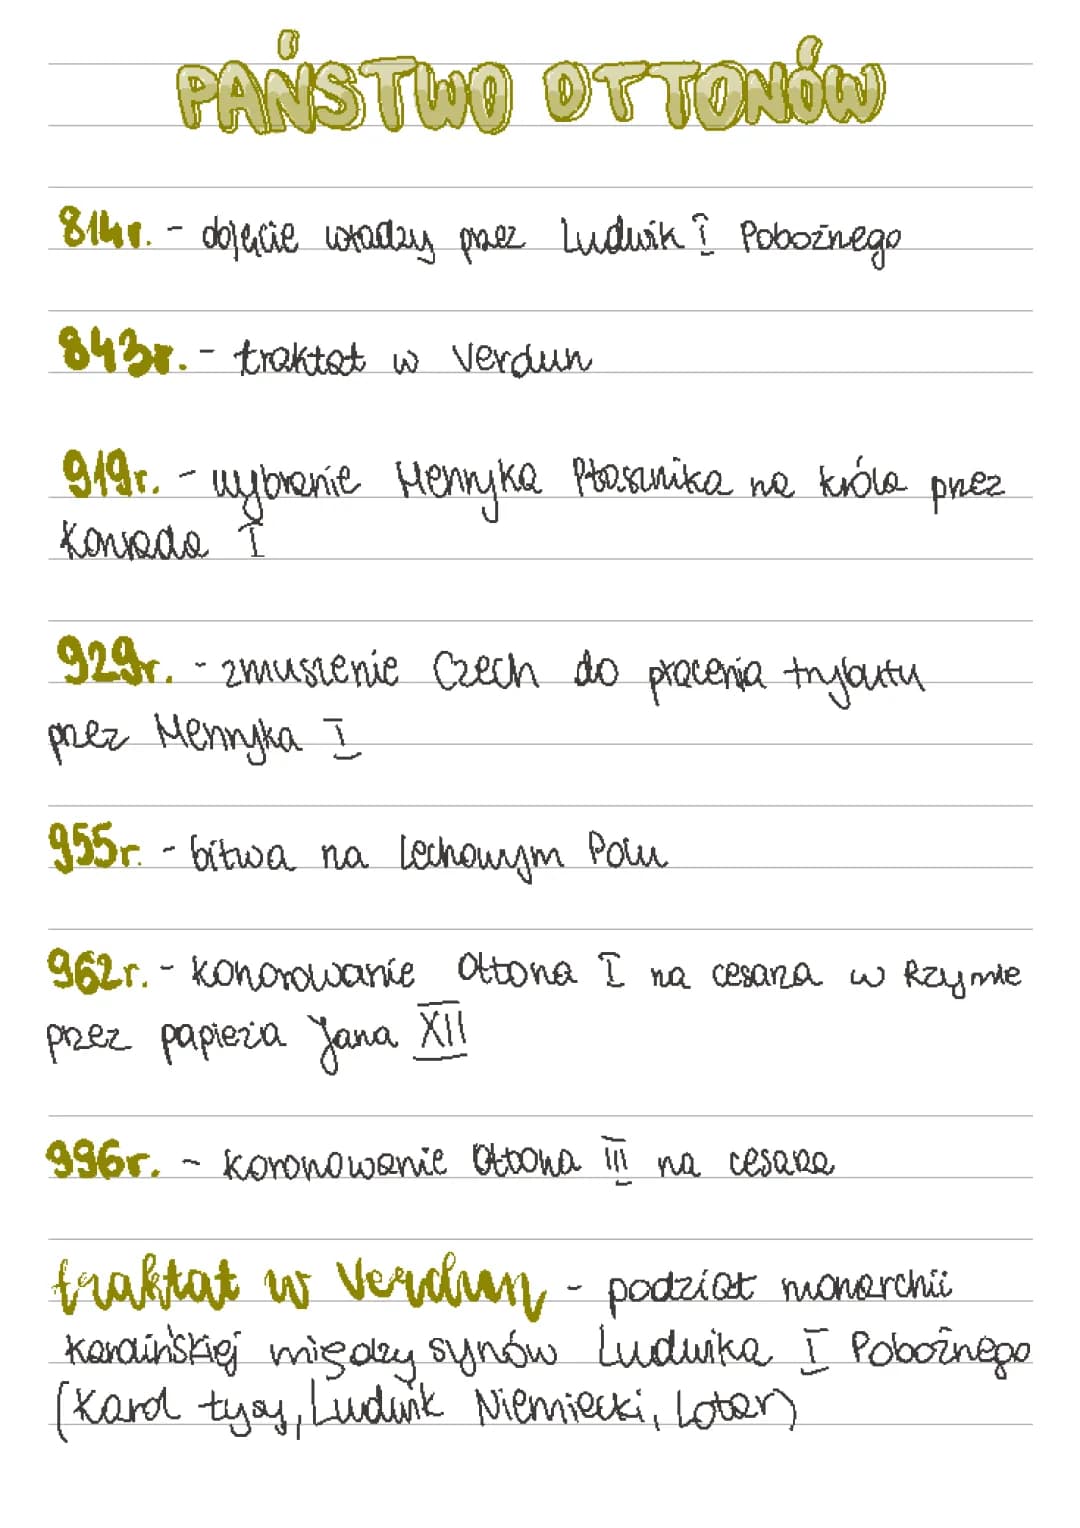 PAŃSTWO OTTONÓW
814r. - objęcie władzy przez Ludwik I Pobożnego
843r. - traktat w Verdun
919r. - wybranie Henryka Ptasznika na króla przez
Konrada I
929r. - zmuszenie Czech do płacenia trybutu
przez Henryka I
955r. - bitwa na Lechowym Polu
962r. - koronowanie Ottona I na cesarza w Rzymie
przez papieża Jana XII
996r. - koronowanie Ottona III na cesarza
traktat w Verdun - podział monarchii
karolińskiej między synów Ludwika I Pobożnego
(Karol Łysy, Ludwik Niemiecki, Lotar)